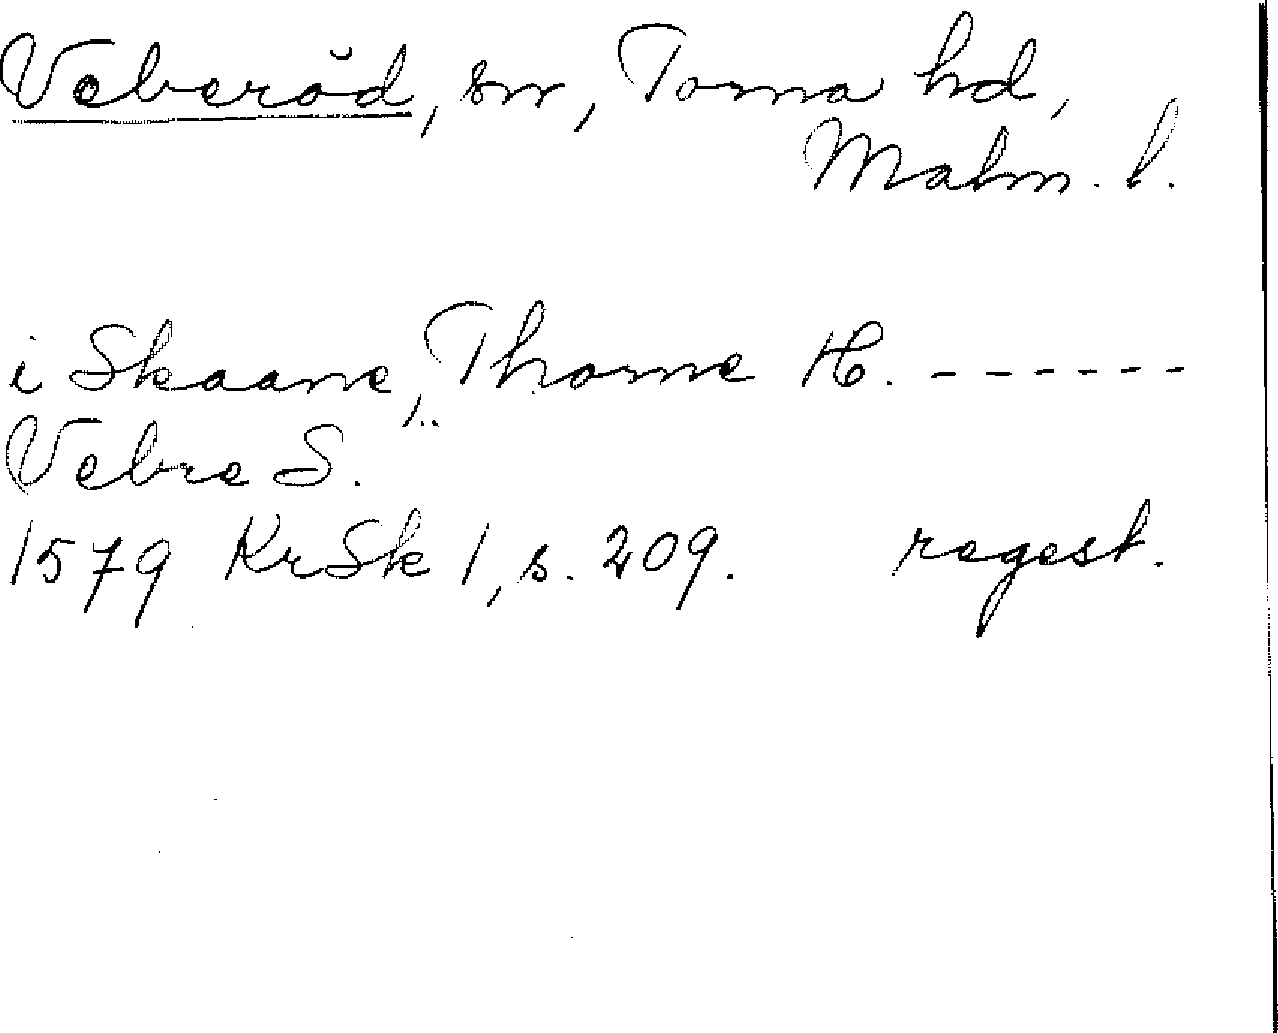 Veberöd, sn, Torna hd,
Malm. l.
i Skaane, Thorne H. ------
Vebre S.
1579 KrSk 1, s. 209. regest.